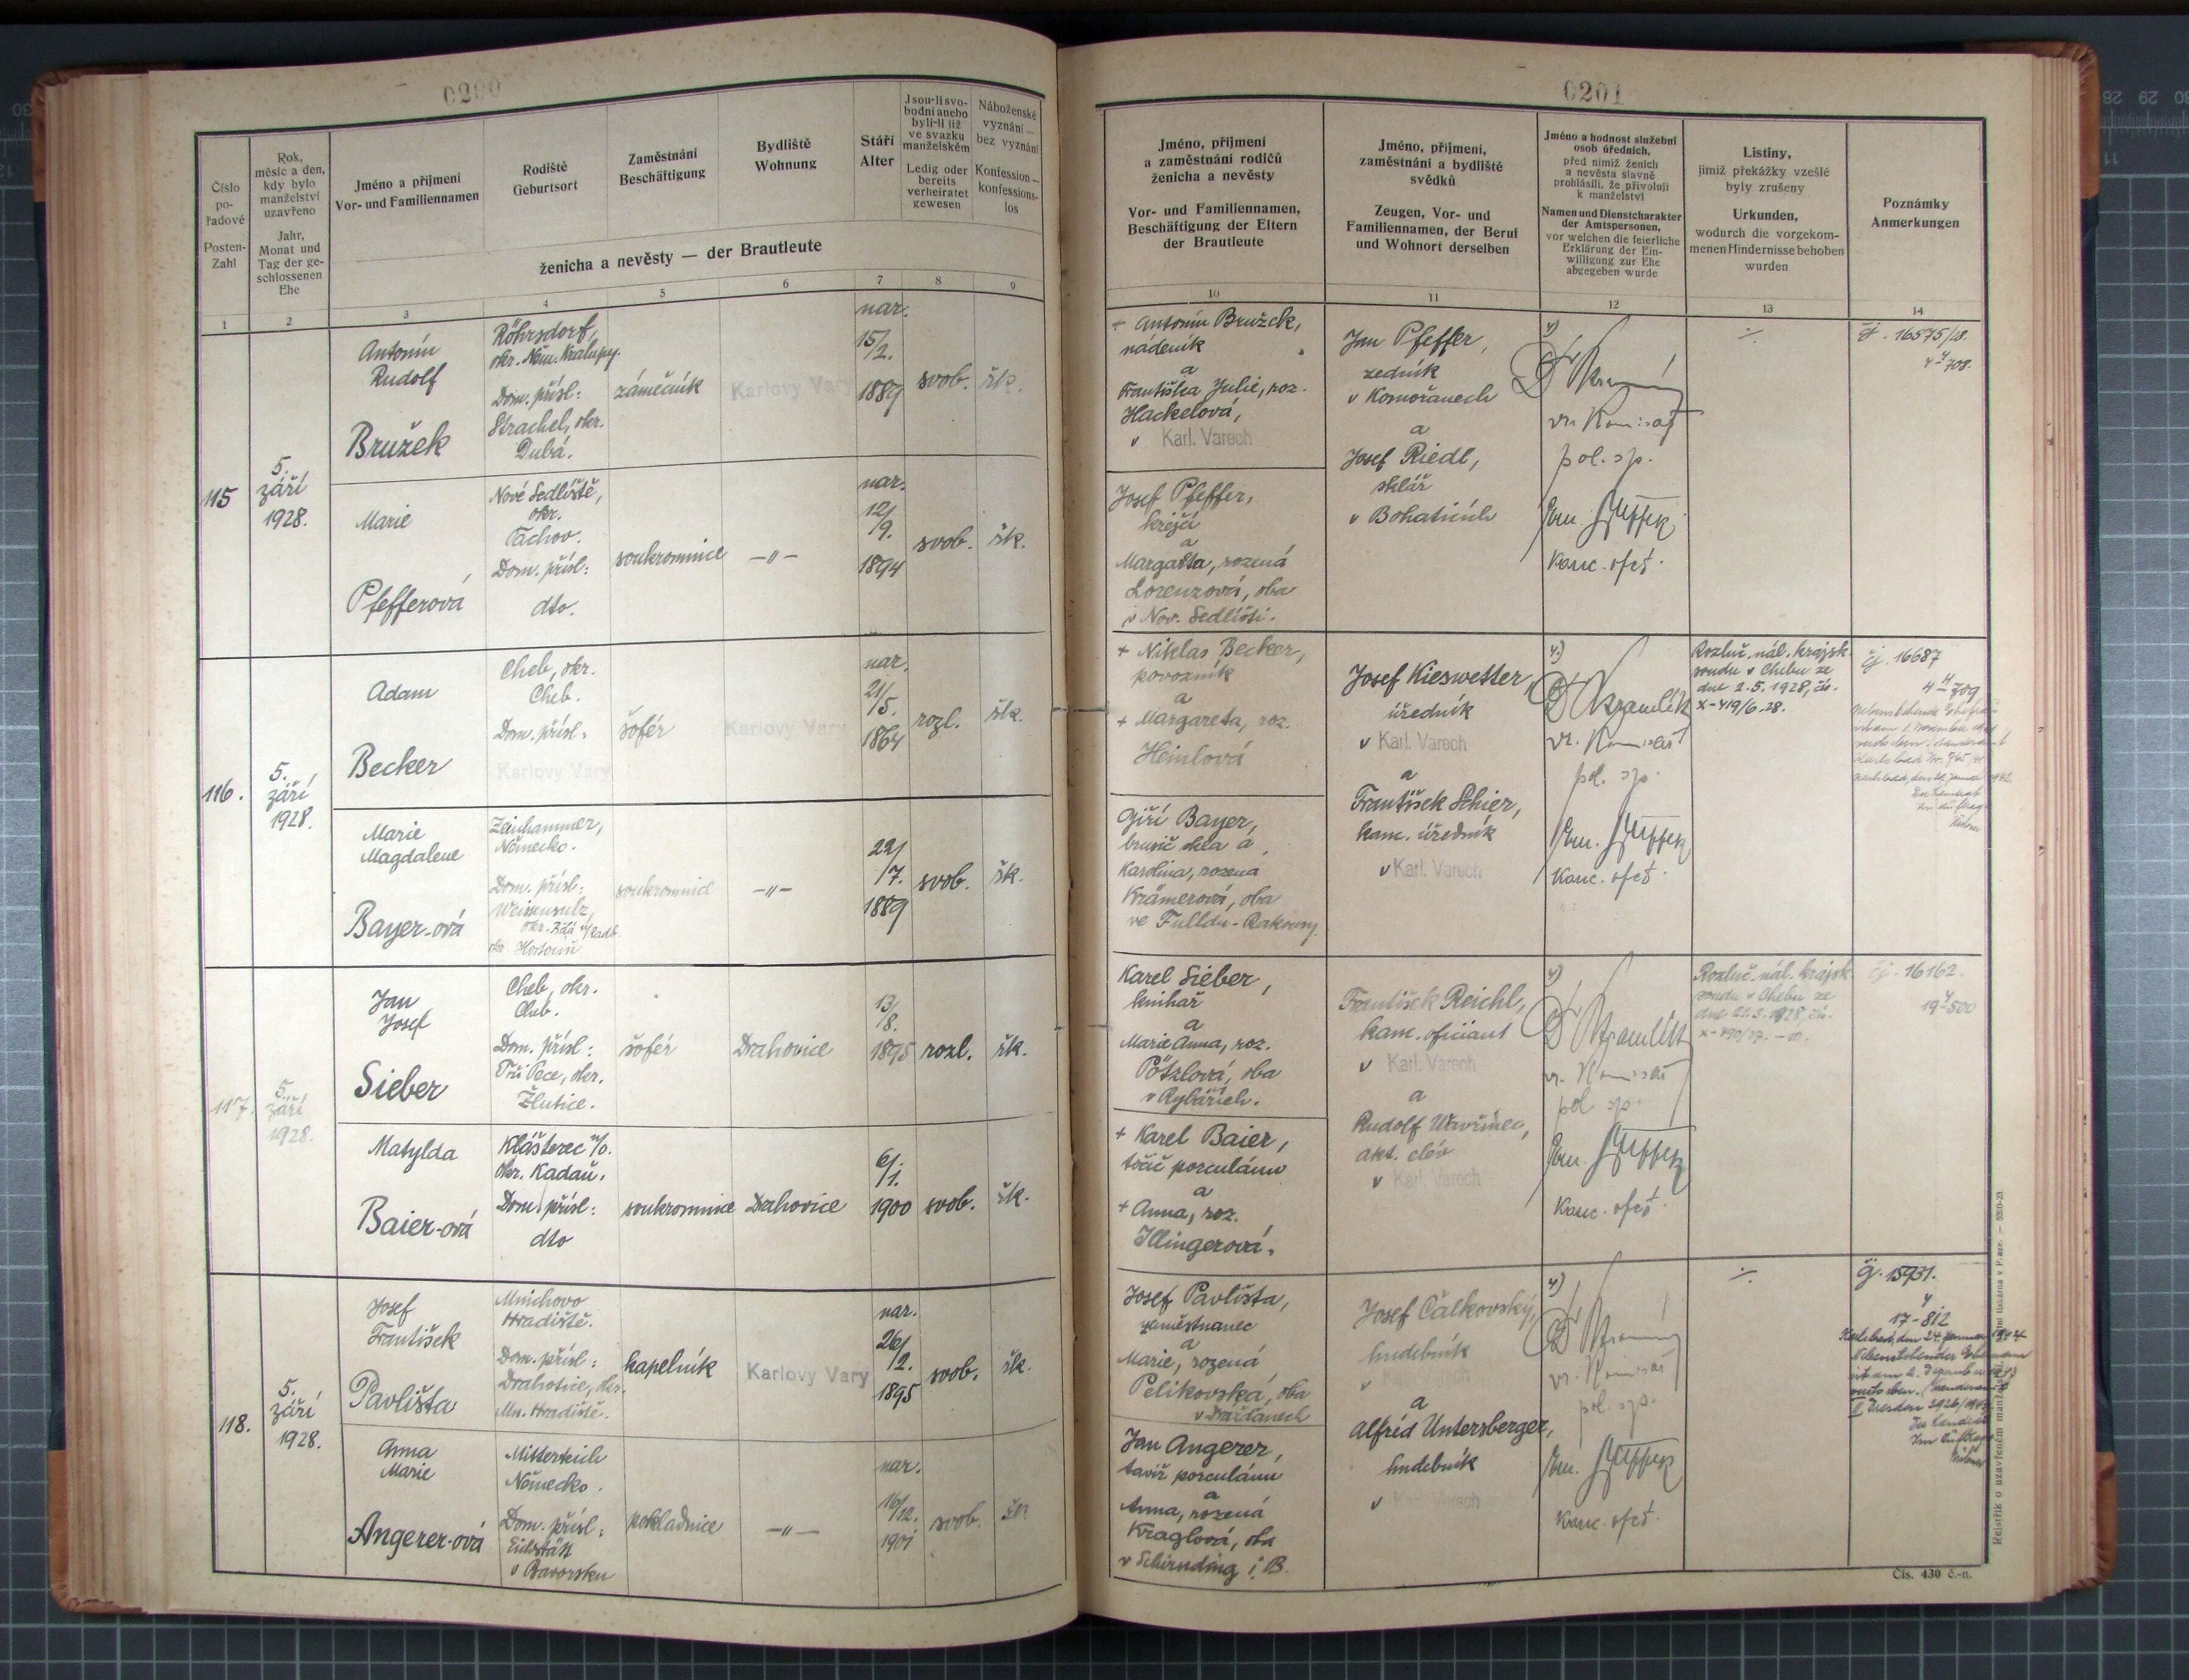 0200
Číslo
po-
řadové
Posten-
Zahl
Rok,
měsíc a den,
kdy bylo
manželství
uzavřeno
Jahr,
Monat und
Tag der ge-
schlossenen
Ehe
Jméno a příjmení
Vor- und Familiennamen
Rodiště
Geburtsort
Zaměstnání
Beschäftigung
Bydliště
Wohnung
Stáří
Alter
Jsou-li svo-
bodni anebo
byli-li již
ve svazku
manželském
Ledig oder
bereits
verheiratet
gewesen
Náboženské
vyznání —
bez vyznání
Konfession —
konfessions-
los
ženicha a nevěsty — der Brautleute
1 2 3 4 5 6 7 8 9
115
5.
září
1928.
Antonín
Rudolf
Bružek
Röhrsdorf,
okr. Něm. Kralupy.
Dom. přísl:
Strachel, okr.
Dubá.
zámečník
Karlovy Vary
nar.
15/
/2.
1889
svob.
šk.
Marie
Pfefferová
Nové Sedliště,
okr.
Tachov.
Dom. přísl:
dto.
soukromnice
—„—
nar.
12/
/9.
1894
svob.
šk.
116.
5.
září
1928.
Adam
Becker
Cheb, okr.
Cheb.
Dom. přísl:
Karlovy Vary
šofér
Karlovy Vary
nar.
21/
/5.
1864
rozl.
šk.
Marie
Magdalene
Bayer-ová
Zeinhammer,
Německo.
Dom. přísl:
Weissensulz,
okr. Horšovův
soukromnice
—„—
22/
/7.
1889
svob.
šk.
117.
5.
září
1928.
Jan
Josef
Sieber
Cheb, okr.
Cheb.
Dom. přísl:
Tři Pece, okr.
Žlutice.
šofér
Drahovice
13/
/8.
1895
rozl.
šk.
Matylda
Baier-ová
Klášterec n/O.
okr. Kadaň.
Dom. přísl:
dto
soukromnice
Drahovice
6/
/1.
1900
svob.
šk.
118.
5.
září
1928.
Josef
František
Pavlišta
Mnichovo
Hradiště.
Dom. přísl:
Drahotice, okr.
Mn. Hradiště.
kapelník
Karlovy Vary
nar.
26/
/2.
1895
svob.
šk.
Anna
Marie
Angerer-ová
Mitterteich
Německo.
Dom. přísl:
Eichstätt
v Bavorsku
pokladnice
—„—
nar.
16/12.
1901
svob.
šk
0201
Jméno, příjmení
a zaměstnání rodičů
ženicha a nevěsty
Vor- und Familiennamen,
Beschäftigung der Eltern
der Brautleute
Jméno, příjmení,
zaměstnání a bydliště
svědků
Zeugen, Vor- und
Familiennamen, der Beruf
und Wohnort derselben
Jméno a hodnost služební
osob úředních,
před nimiž ženich
a nevěsta slavně
prohlásili, že přivolují
k manželství
Namen und Dienstcharakter
der Amtspersonen,
vor welchen die feierliche
Erklärung der Ein-
willigung zur Ehe
abgegeben wurde
Listiny,
jimiž překážky vzešlé
byly zrušeny
Urkunden,
wodurch die vorgekom-
menen Hindernisse behoben
wurden
Poznámky
Anmerkungen
10 11 12 13 14
+ Antonín Bružek,
nádeník
a
Františka Julie, roz.
Hackelová,
v Karl. Varech
Josef Pfeffer,
krejčí
a
Margareta, rozená
Lorenzová, oba
v Nov. Sedlišti.
Jan Pfeffer,
zedník
v Komořanech
a
Josef Riedl,
sklář
v Bohaticích
vr. Komisař
pol. sp.
kanc. ofic.
čj. 16575/18.
+ Niklas Becker,
povozník
a
+ Margareta, roz.
Heinlová
Jiří Bayer,
brusič skla a
Karolina, rozená
Krämerová, oba
ve Josef Kieswetter,
úředník
v Karl. Varech
a
František Schier,
kanc. úředník
v Karl. Varech
vr. Komisař
pol. sp.
kanc. ofic.
Rozluč. nál. krajsk.
soudu v Chebu ze
dne 2.5.1928, čís.
X-419/6.28.
čj. 16687
Karel Sieber,
knihař
a
Marie Anna, roz.
Pötzlová, oba
v Rybářích.
+ Karel Baier,
točič porculánu
a
+ Anna, roz.
Illingerová.
František Reichl,
kanc. oficiant
v Karl. Varech
a
Rudolf Wavřinec,
akt. elév
v Karl. Varech
vr. Komisař
pol. sp.
kanc. ofic.
Rozluč. nál. krajsk.
soudu v Chebu ze
čj. 16162.
Josef Pavlišta,
zaměstnanec
a
Marie, rozená
Pelikovská, oba
v Drážďanech
Jan Angerer,
tavič porculánu
a
Anna, rozená
Kraglová, oba
v Schirnding i. B.
Josef Čalkovský,
hudebník
v
a
Alfréd Untersberger,
hudebník
v Karl. Varech
vr. Komisař
pol. sp.
kanc. ofic.
čj. 15931.
17-812
Rejstřík o uzavřeném manželství.
Čís. 430 č.-n.